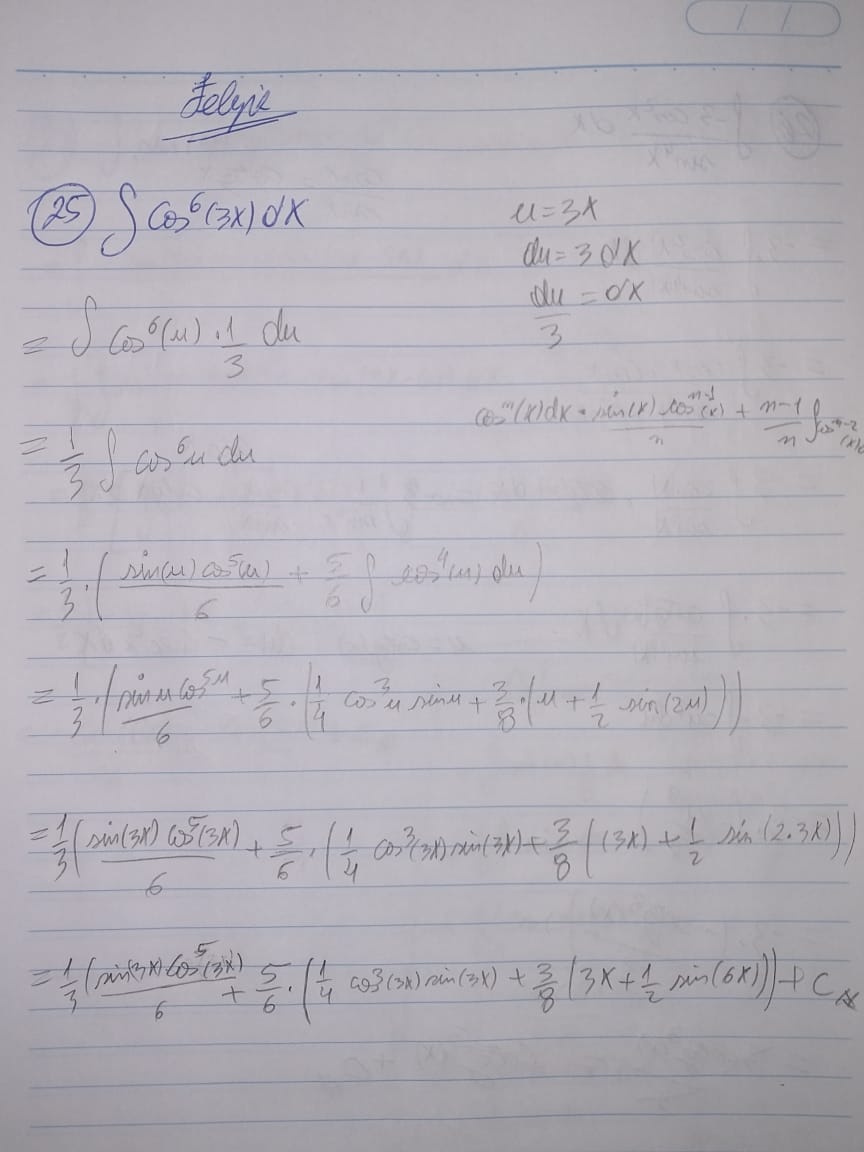 25 ∫ cos⁶(3x) dx
u = 3x
du = 3 dx
du/3 = dx
= ∫ cos⁶(u) · 1/3 du
cosⁿ(x)dx = sin(x) cosⁿ⁻¹(x)/n + n-1/n ∫ cosⁿ⁻²(x)
= 1/3 ∫ cos⁶u du
= 1/3 · ( sin(u) cos⁵(u)/6 + 5/6 ∫ cos⁴(u) du )
= 1/3 · ( sin u cos⁵u/6 + 5/6 · ( 1/4 cos³u sin u + 3/8 · ( u + 1/2 sin(2u) ) ) )
= 1/3 ( sin(3x) cos⁵(3x)/6 + 5/6 · ( 1/4 cos³(3x) sin(3x) + 3/8 ( (3x) + 1/2 sin(2.3x) ) )
= 1/3 ( sin(3x) cos⁵(3x)/6 + 5/6 · ( 1/4 cos³(3x) sin(3x) + 3/8 ( 3x + 1/2 sin(6x) ) ) + C